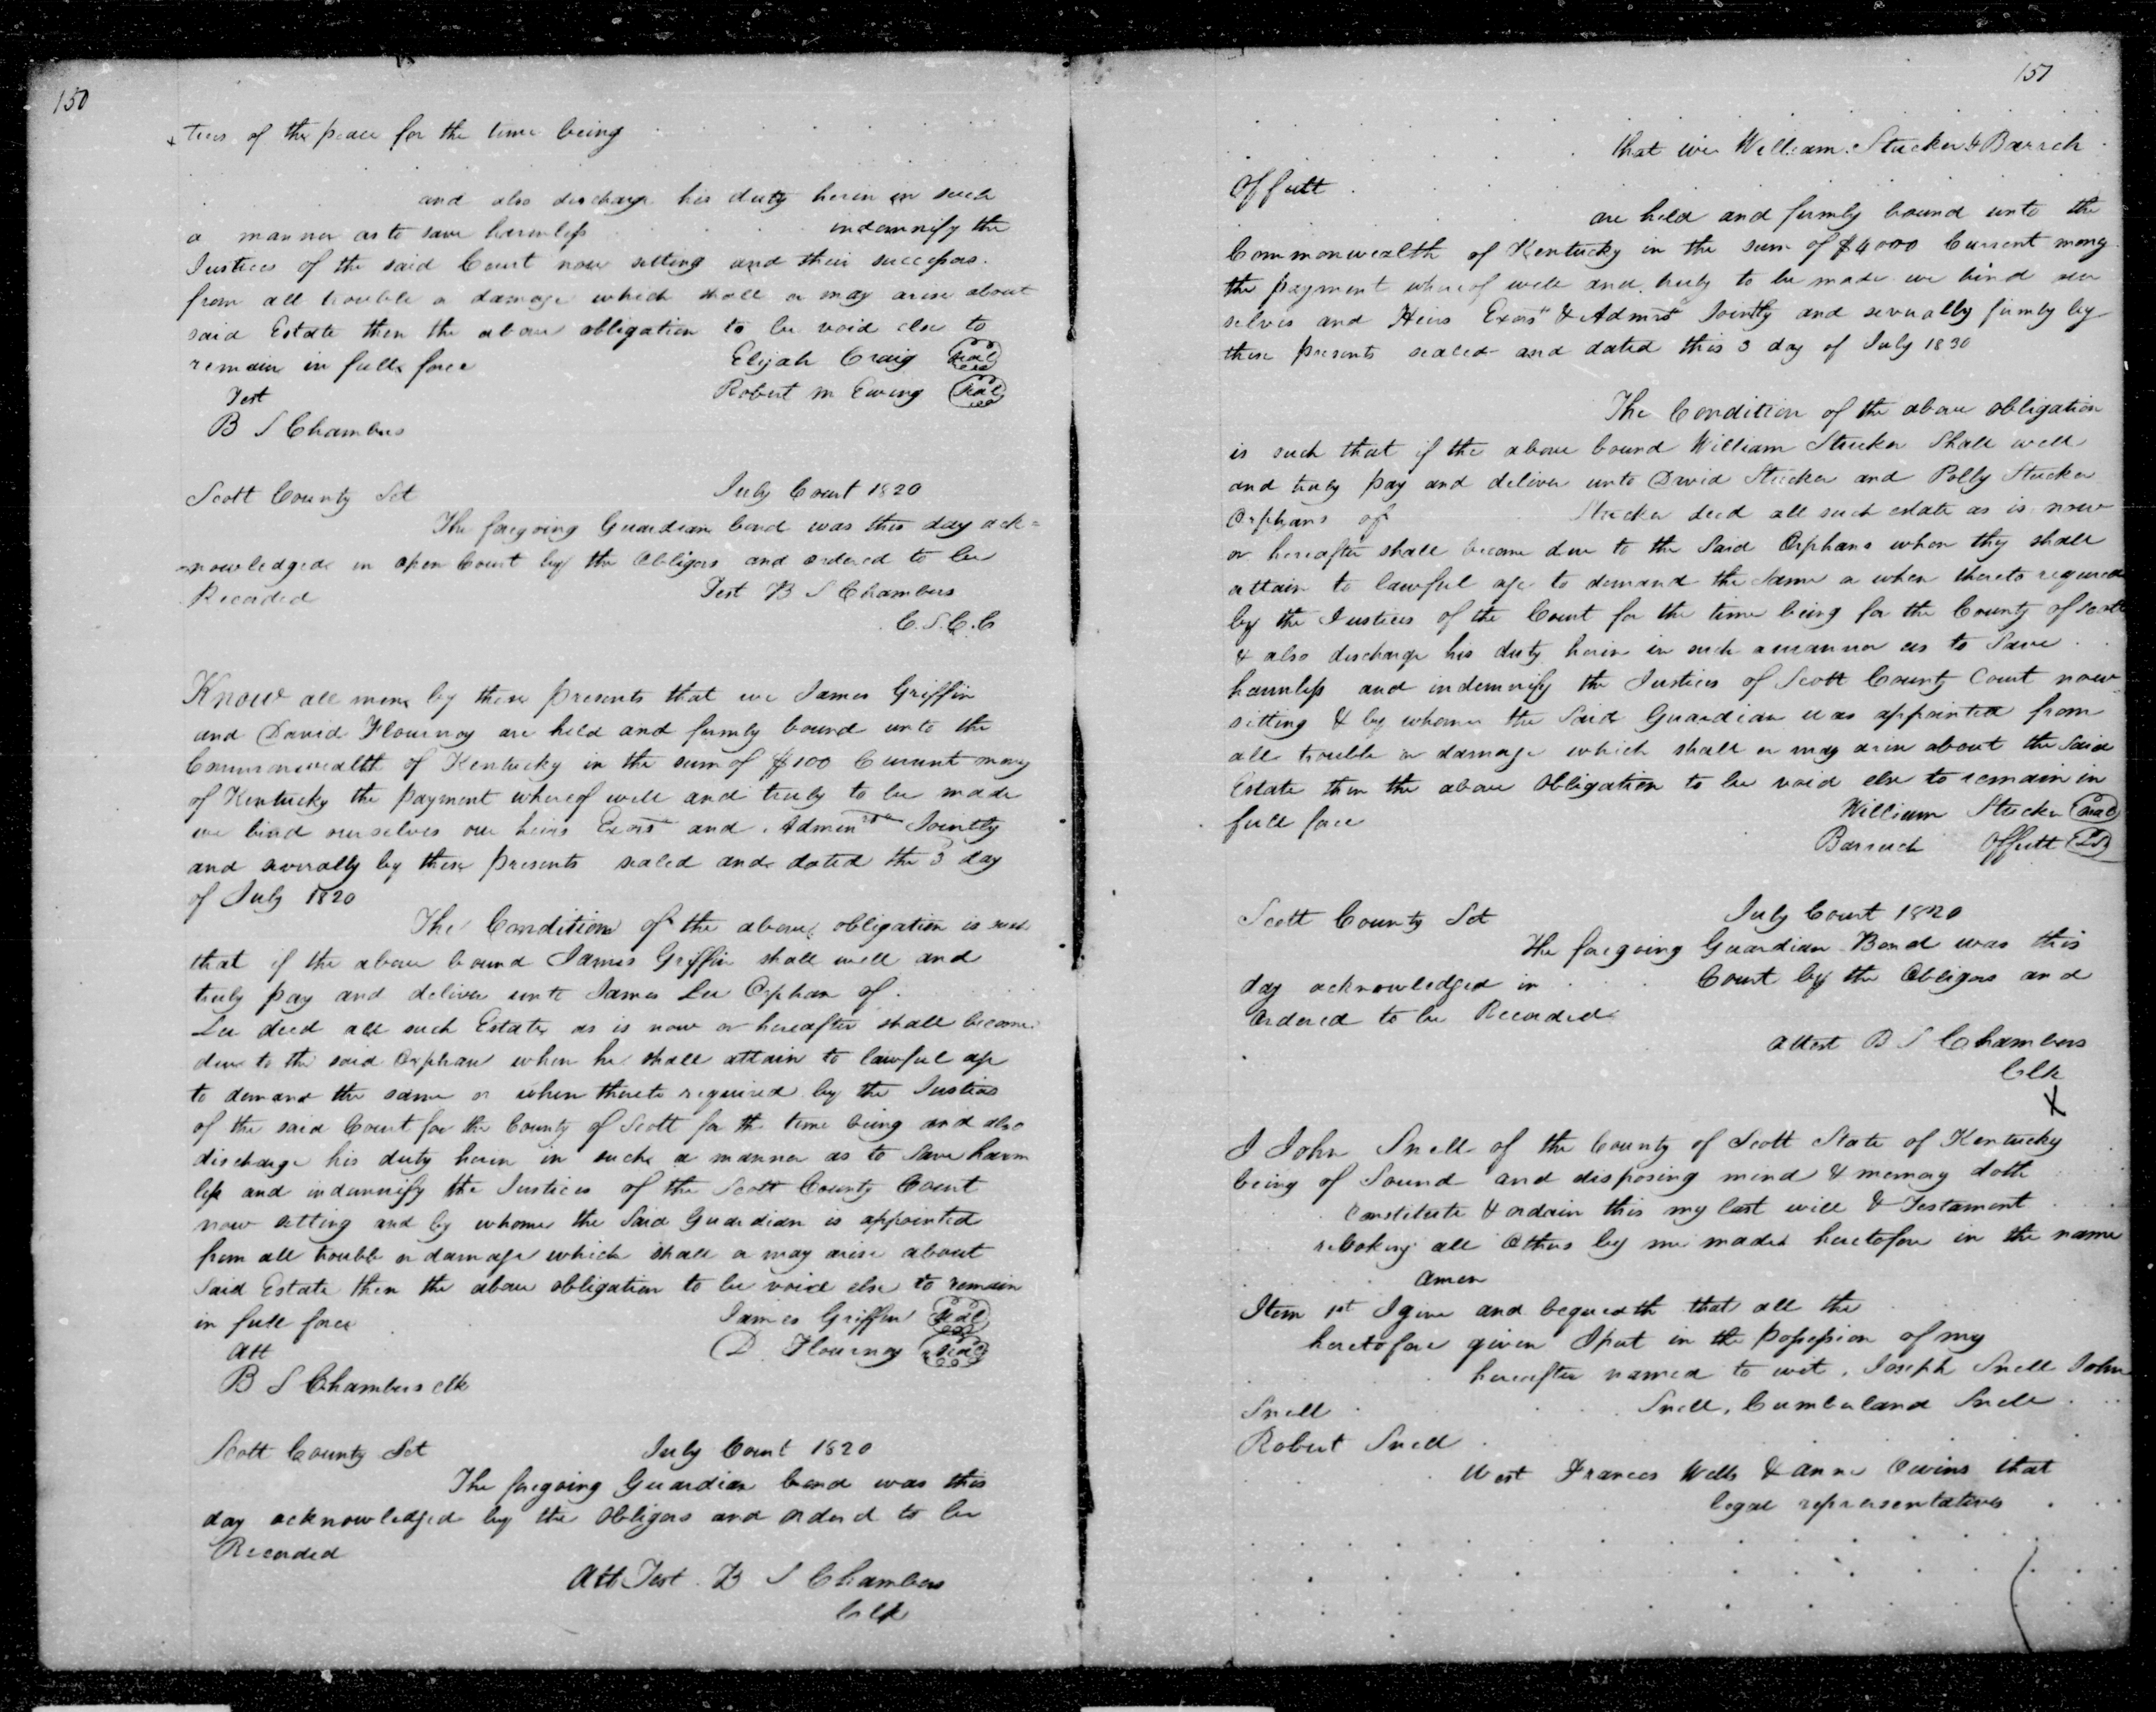 150
tices of the peace for the time being
and also discharge his duty herein in such
a manner as to save harmless indemnify the
Justices of the said Court now sitting and their successors
from all trouble or damage which shall or may arise about
said Estate then the above obligation to be void else to
remain in full force Elijah Craig Seal
Test Robert M Ewing Seal
B S Chambers
Scott County Sct July Court 1820
The foregoing Guardian bond was this day ack=
nowledged in open Court by the Obligors and ordered to be
Recorded Test B S Chambers
C.S.C.C
Know all men by these presents that we James Griffin
and David Flournoy are held and firmly bound unto the
Commonwealth of Kentucky in the sum of $100 Current mony
of Kentucky the payment whereof well and truly to be made
we bind ourselves our heirs Exors and Admin Jointly
and severally by these presents sealed and dated the 3 day
of July 1820
The Condition of the above obligation is such
that if the above bound James Griffin shall well and
truly pay and deliver unto James Lee Orphan of
Lee decd all such Estate as is now or hereafter shall become
due to the said Orphan when he shall attain to lawful age
to demand the same or when thereto required by the Justices
of the said Court for the County of Scott for the time being and also
discharge his duty herein in such a manner as to save harm
less and indemnify the Justices of the Scott County Court
now setting and by whome the said Guardian is appointed
from all trouble or damage which shall or may arise about
said Estate then the above obligation to be void else to remain
in full force James Griffin Seal
Att D. Flournoy Seal
B S Chambers clk
Scott County Sct July Court 1820
The foregoing Guardian bond was this
day acknowledged by the Obligors and ordered to be
Recorded
Att Test B S Chambers
Clk
151
that we William Stucker & Barrich
Offutt
are held and firmly bound unto the
Commonwealth of Kentucky in the sum of $4000 Current mony
the payment whereof well and truly to be made we bind our
selves and Heirs Exors & Admrs Jointly and severally firmly by
these presents sealed and dated this 3 day of July 1830
The Condition of the above obligation
is such that if the above bound William Stucker Shall well
and truly pay and deliver unto David Stucker and Polly Stucker
Orphans of Stucker decd all such estate as is now
or hereafter shall become due to the Said Orphans when thy shall
attain to lawful age to demand the same or when thereto required
by the Justices of the Court for the time being for the County of Scott
& also discharge his duty herein in such a manner as to Save
harmless and indemnify the Justices of Scott County Court now
sitting & by whome the Said Guardian was appointed from
all trouble or damage which shall or may arise about the Said
Estate then the above Obligation to be void else to remain in
full force William Stucker Seal
Barruch Offutt
Scott County Sct July Court 1820
The foregoing Guardian Bond was this
day acknowledged in Court by the Obligors and
Ordered to be Recorded
Attest B S Chambers
Clk
X
I John Snell of the County of Scott State of Kentucky
being of Sound and disposing mind & memory doth
Constitute & ordain this my last will & Testament
reboking all Others by me made heretofore in the name
amen
Item 1st I give and bequeath that all the
heretofore given I put in the possession of my
hereafter named to wit, Joseph Snell John
Snell Snell, Cumberland Snell
Robert Snell
West Frances Wells & Anne Owins that
legal representatives